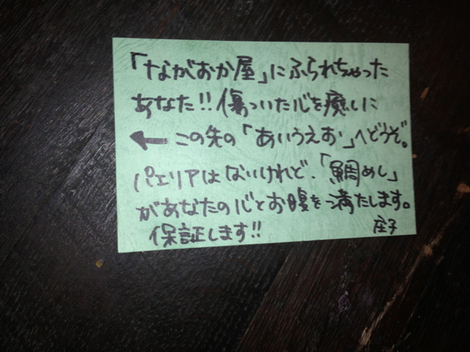 「ながおか屋」にふられちゃった
あなた!!傷ついた心を癒しに
← この先の「あいうえお」へどうぞ。
パエリアはないけれど、「鯛めし」
があなたの心とお腹を満たします。
保証します!!
庄子